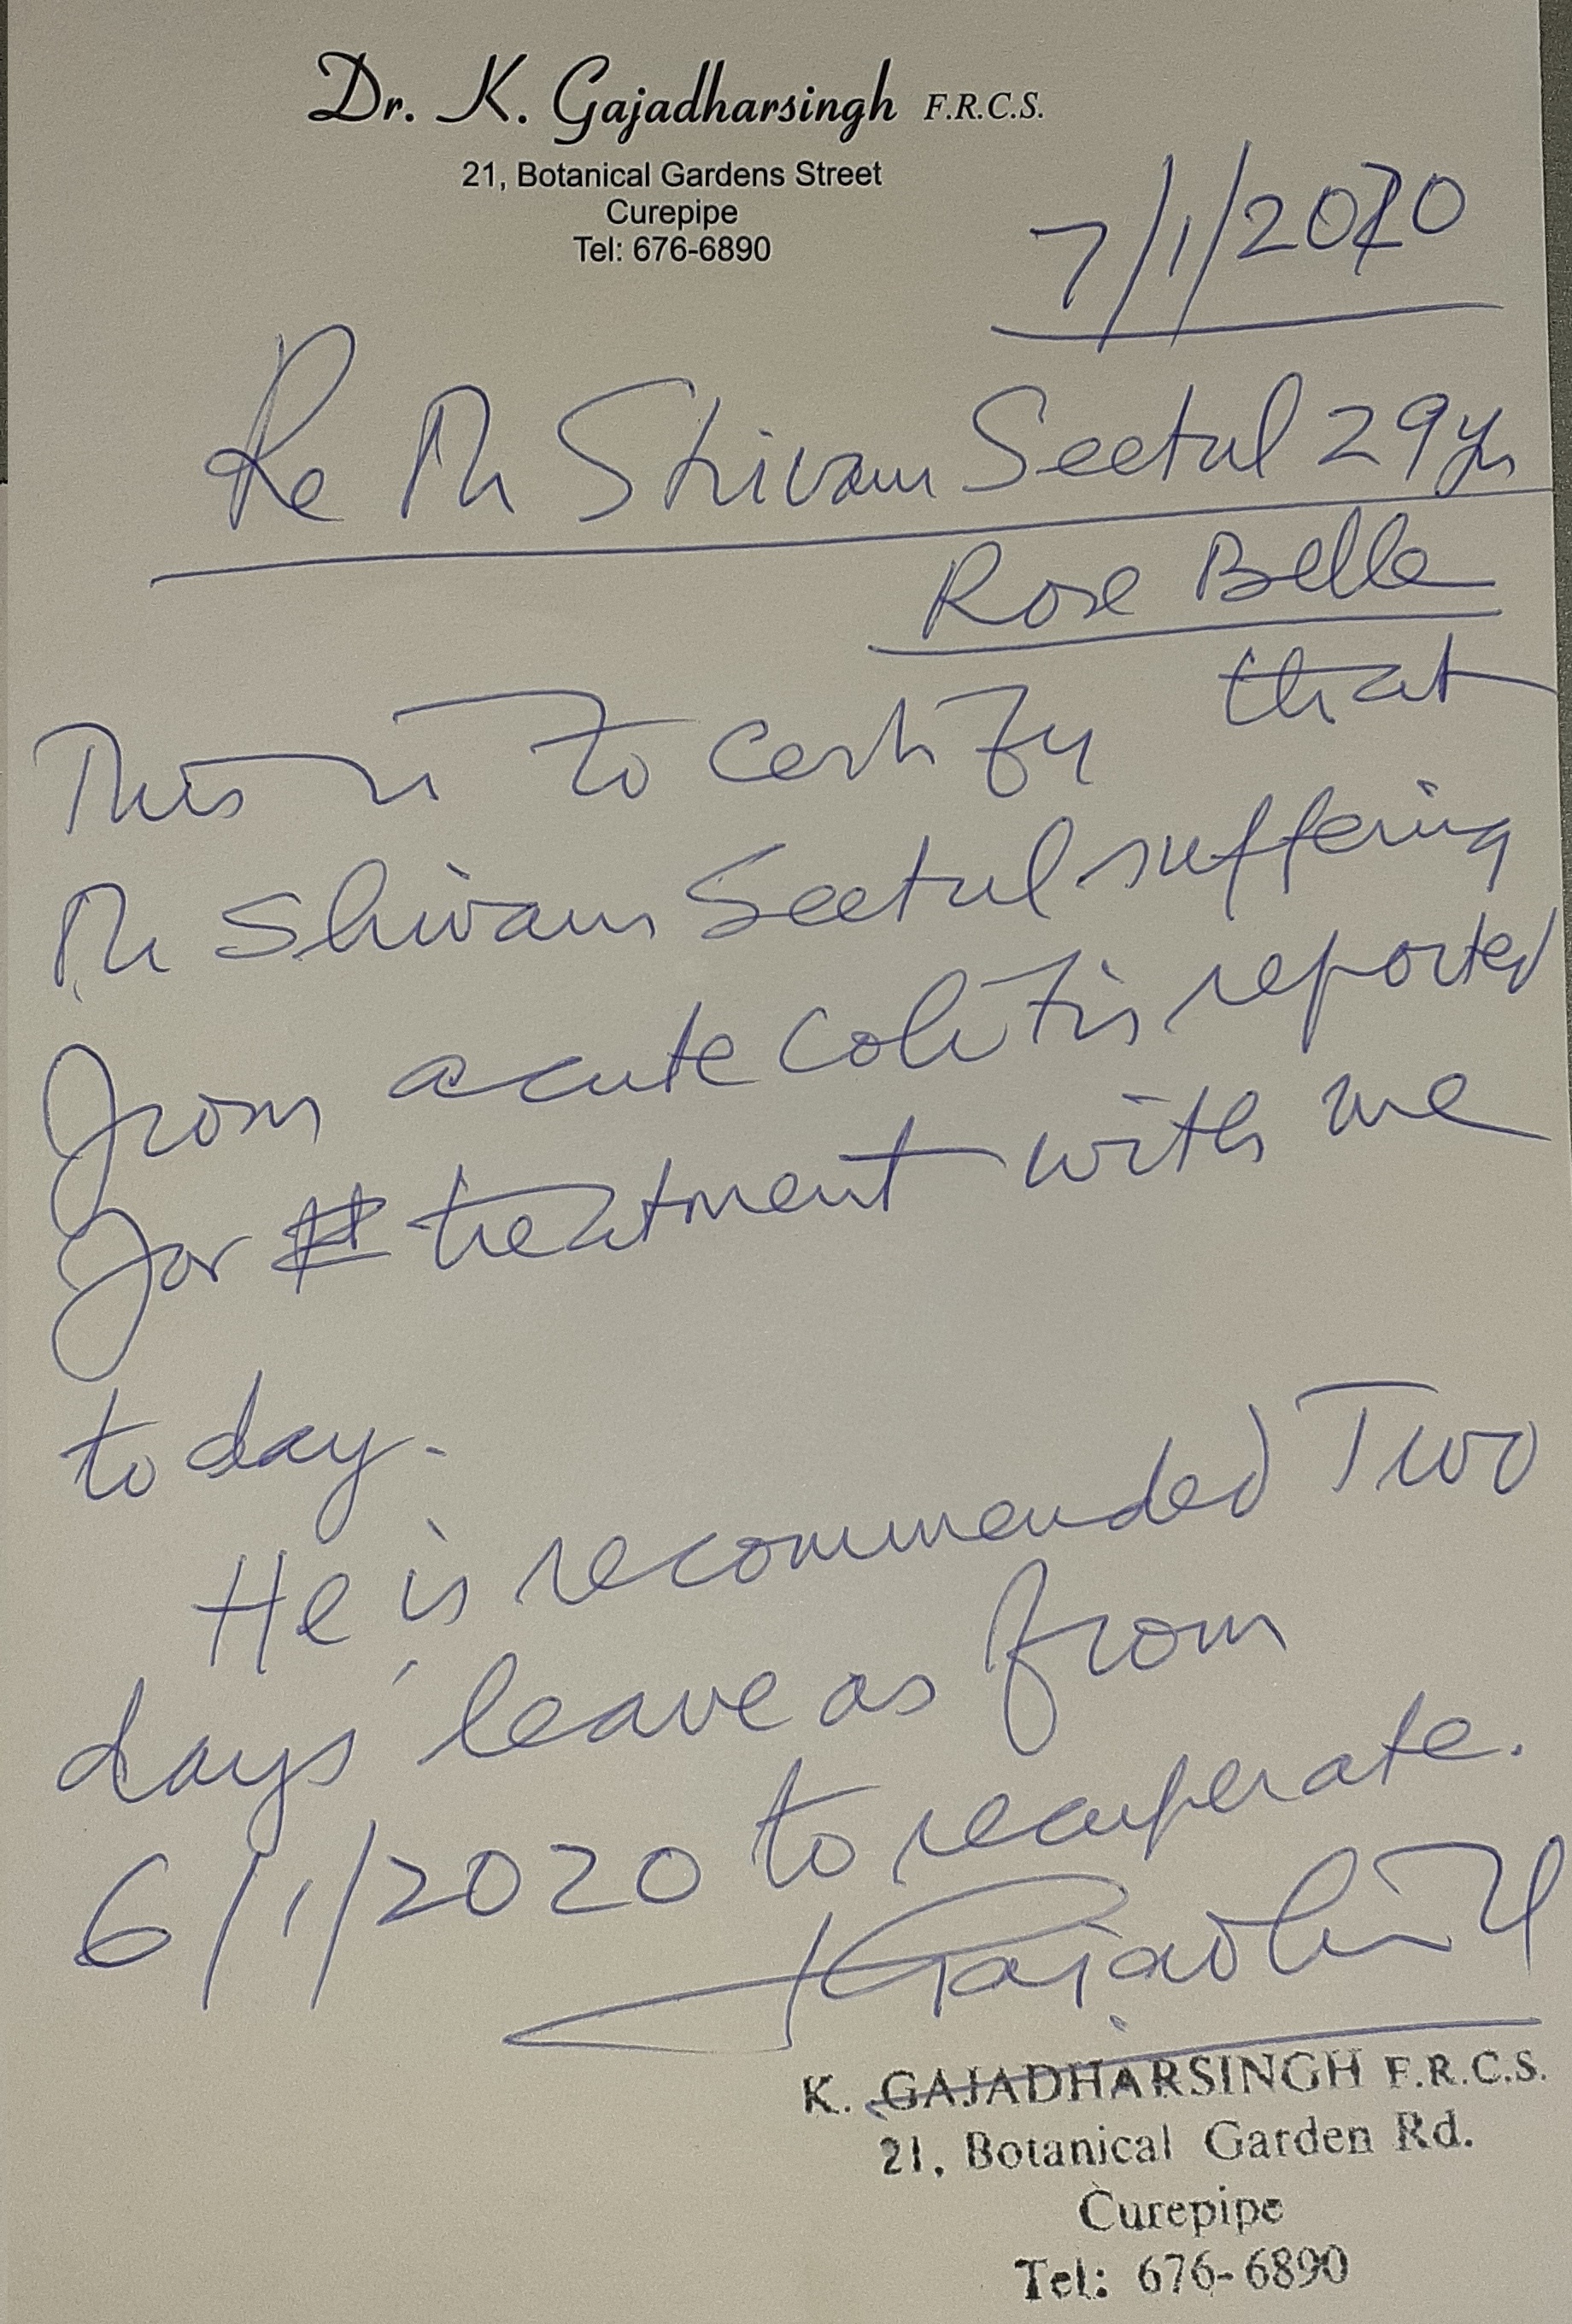 Dr. K. Gajadharsingh F.R.C.S.
21, Botanical Gardens Street
Curepipe
Tel: 676-6890
7/1/2020
Re Mr Shivam Seetul 29yrs
Rose Belle
This is to certify that
Mr Shivam Seetul suffering
from acute colitis reported
for treatment with me
today.
He is recommended Two
days' leave as from
6/1/2020 to recuperate.
K. GAJADHARSINGH F.R.C.S.
21, Botanical Garden Rd.
Curepipe
Tel: 676-6890